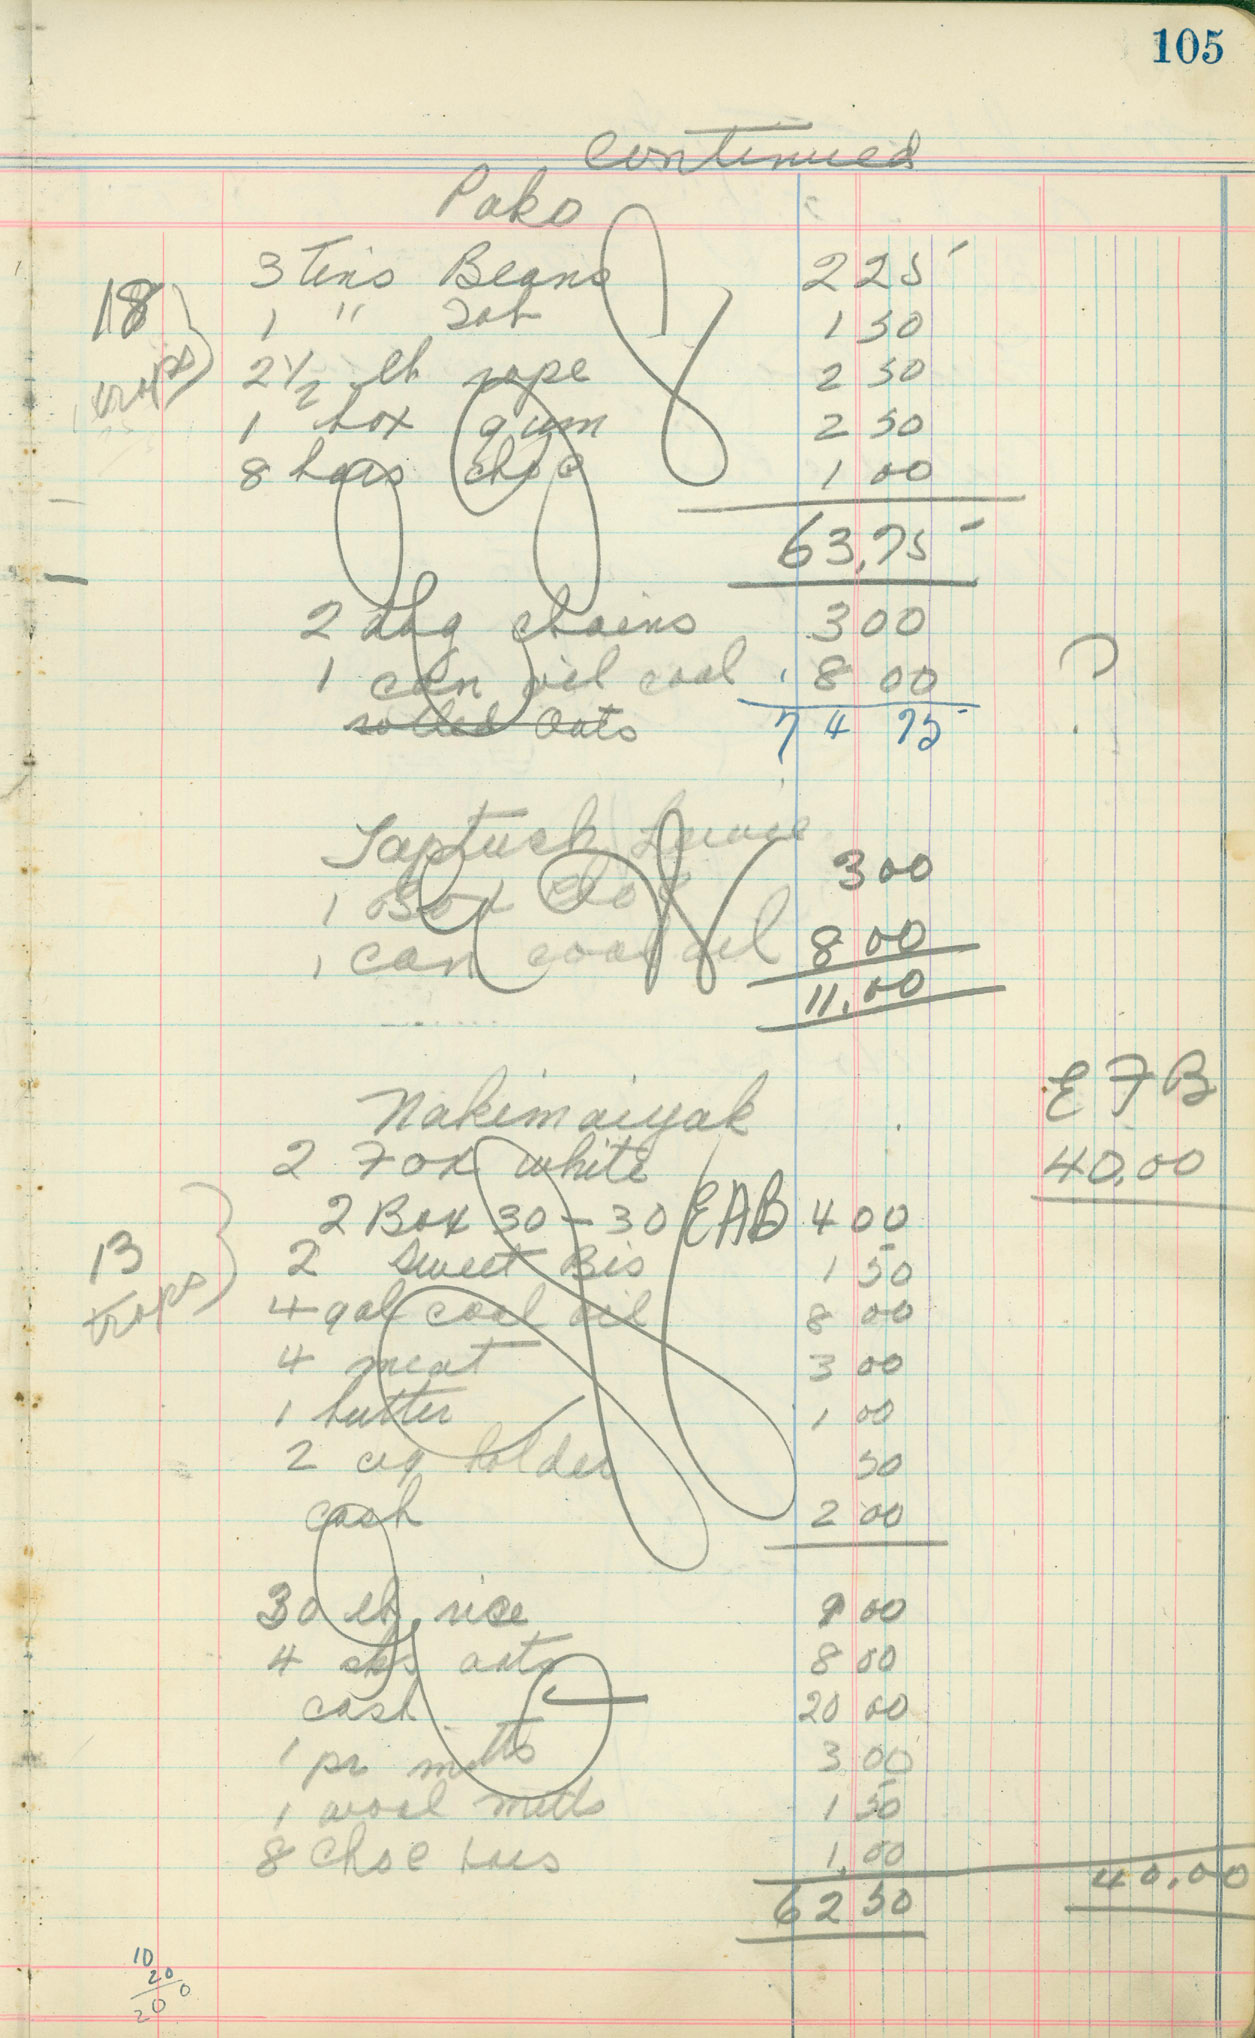 105
continued
Pako
3 Tins Beans 2 25
1 " 1 50
18 traps
2 1/2 lb rope 2 50
1 box gum 2 50
8 bars choc 1 00
63.75
2 dog chains 3 00
1 can oil coal 8 00
?
rolled Oats 74 75
Taptuck
1 Box Choc 3 00
1 can coal oil 8 00
11.00
E F B
Nakimaiyak
2 Fox white 40.00
2 Box 30-30 EAB 4 00
13 traps
2 Sweet Bis 1 50
4 gal coal oil 8 00
4 meat 3 00
1 butter 1 00
2 cig holder 50
cash 2 00
30 lb rice 9 00
4 sks oats 8 00
cash 20 00
1 pr mitts 3 00
1 wool mitts 1 50
8 Choc bars 1.00
62 50 40.00
10
20
20 0